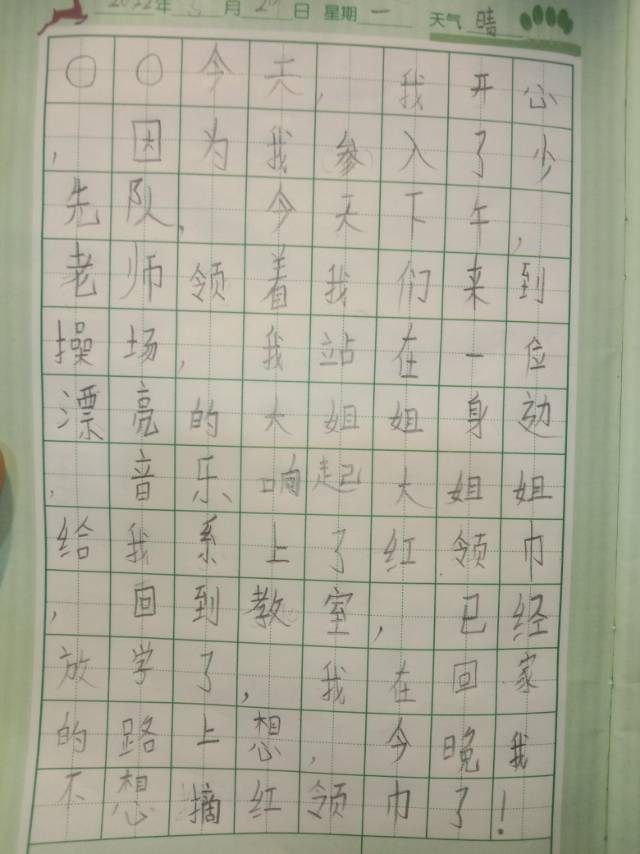 2022年5月2日 星期一 天气晴
○○今天，我开心
，因为我参入了少
先队，今天下午，
老师领着我们来到
操场，我站在一位
漂亮的大姐姐身边
，音乐响起大姐姐
给我系上了红领巾
，回到教室，已经
放学了，我在回家
的路上想，今晚我
不想摘红领巾了！